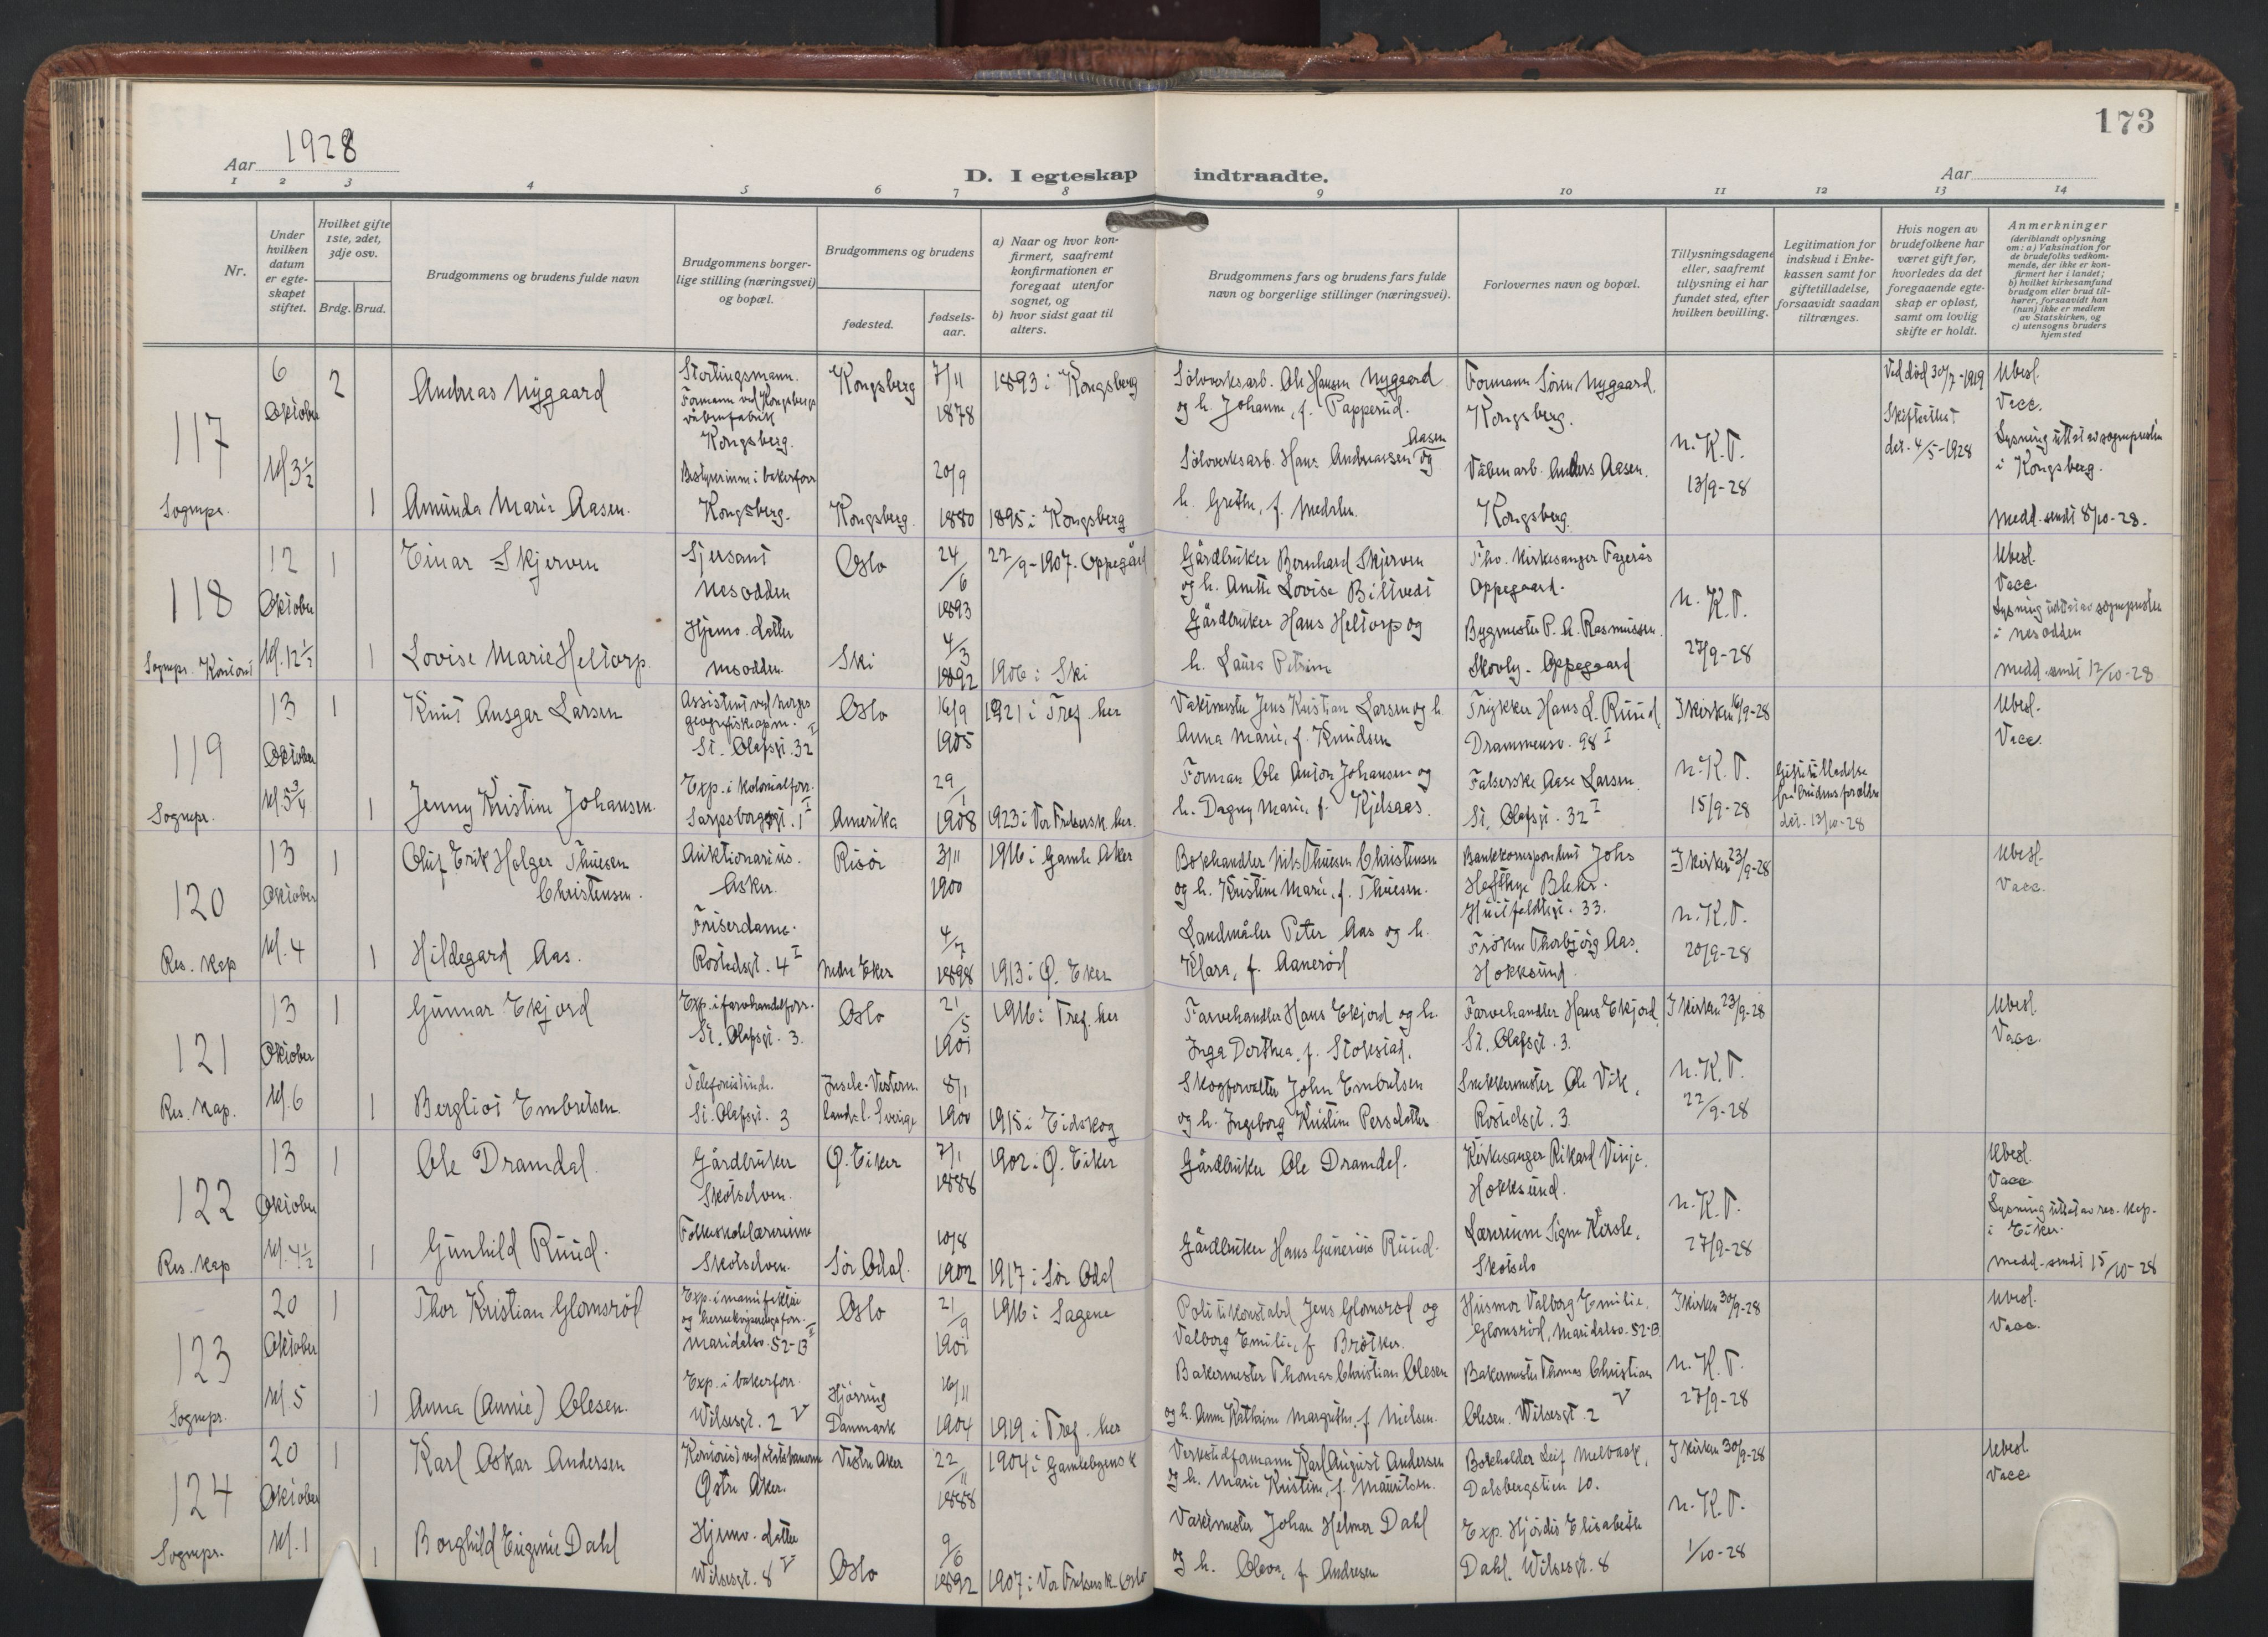 173
Aar 1928
D. I egteskap indtraadte.
Aar
1 2 3 4 5 6 7 8 9 10 11 12 13 14
Nr.
Under hvilken datum er egte-skapet stiftet.
Hvilket gifte 1ste, 2det, 3dje osv.
Brdg. Brud.
Brudgommens og brudens fulde navn
Brudgommens borger-lige stilling (næringsvei) og bopæl.
Brudgommens og brudens
fødested.
fødsels-aar.
a) Naar og hvor kon-firmert, saafremt konfirmationen er foregaat utenfor sognet, og
b) hvor sidst gaat til alters.
Brudgommens fars og brudens fars fulde navn og borgerlige stillinger (næringsvei).
Forlovernes navn og bopæl.
Tillysningsdagene eller, saafremt tillysning ei har fundet sted, efter hvilken bevilling.
Legitimation for indskud i Enke-kassen samt for giftetilladelse, forsaavidt saadan tiltrænges.
Hvis nogen av brudefolkene har været gift før, hvorledes da det foregaaende egte-skap er opløst, samt om lovlig skifte er holdt.
Anmerkninger
(deriblandt oplysning om: a) Vaksination for de brudefolks vedkom-mende, der ikke er kon-firmert her i landet; b) hvilket kirkesamfund brudgom eller brud til-hører, forsaavidt han (hun) ikke er medlem av Statskirken, og c) utensogns bruders hjemsted
117
Sognepr.
6
Oktober
kl. 3 1/2
2
Andreas Nygaard
Stortingsmann.
Formann ved Kongsbergs
våbenfabrik
Kongsberg.
Kongsberg
7/11
1878
1893 i Kongsberg
Sölvverksarb. Ole Hansen Nygaard
og h. Johanne, f. Papperud.
Formann Sören Nygaard.
Kongsberg.
Ved död 30/7-1919
Skifteattest
det. 4/5-1928
Ubesl.
Vacc.
Lysning uttat av sognepresten
i Kongsberg.
1
Amunda Marie Aasen.
Bestyrerinne i bakerforr
Kongsberg.
Kongsberg.
20/9
1880
1895 i Kongsberg
Sölvverksarb. Hans Andreassen Aasen og
h. Grethe, f. Medalen.
Våbenarb. Anders Aasen.
Kongsberg.
N.K.T.
13/9-28
Medd. sendt 8/10-28.
118
Sognepr. Kontort
12
Oktober
kl. 12 1/2
1
Einar Skjerven
Sjersant
Nesodden
Oslo
24/6
1893
22/9-1907. Oppegård
Gårdbruker Bernhard Skjerven
og h. Anette Lovise Biltvedt
Fhv. Kirkesanger Fagerås
Oppegaard.
Ubesl.
Vacc.
Lysning uttat av sognepresten
i Nesodden
1
Lovise Marie Heltorp.
Hjemv. datter
Nesodden.
Ski
4/3
1892
1906 i Ski
Gårdbruker Hans Heltorp og
h. Laura Petrine
Bygmester P. A. Rasmussen.
Skovly. Oppegaard
N.K.T.
27/9-28
Medd. sendt 12/10-28
119
Sognepr.
13
Oktober
kl. 5 3/4
1
Knut Ansgar Larsen
Assistent ved Norges
geografiske opm.
St. Olafsgt. 32 I
Oslo
16/9
1905
1921 i Tref. her
Vaktmester Jens Kristian Larsen og h.
Anna Marie, f. Knudsen
Trykker Hans L. Ruud
Drammensv. 98 I
I kirken 16/9-28
Ubesl.
Vacc.
1
Jenny Kristine Johansen.
Exp. i kolonialforr.
Sarpsborggt. 1 I
Amerika
29/1
1908
1923 i Vor Frelsersk. her.
Forman Ole Anton Johansen og
h. Dagny Marie, f. Kjelsaas.
Falserske Aase Larsen.
St. Olafsgt. 32 I
N.K.T.
15/9-28
Giftetilladelse
fra brudens foreldre
det. 13/10-28
120
Res. Kap
13
Oktober
kl. 4
1
Oluf Erik Holger Thuesen
Christensen.
Auktionarius.
Asker.
Risör
3/11
1900
1916 i Gamle Aker
Bokhandler Nils Thuesen Christensen
og h. Kristine Marie, f. Thuesen.
Bankkorrespondent Johs
Heftye Blehr.
Huitfeldtsgt. 33.
I kirken 23/9-28
Ubesl.
Vacc.
1
Hildegard Aas.
Friserdame.
Rostedsgt. 4 I
Nedre Eker
4/7
1898
1913 i Ö. Eker
Landmåler Peter Aas og h.
Klara, f. Aanerød
Fröken Thorbjörg Aas.
Hokksund.
N.K.T.
20/9-28
121
Res. Kap.
13
Oktober
kl. 6
1
Gunnar Ekjord
Exp. i farvehandelforr.
St. Olafsgt. 3.
Oslo
21/5
1901
1916 i Tref. her
Farvehandler Hans Ekjord og h.
Inga Dorthea, f. Stokstad.
Farvehandler Hans Ekjord
St. Olafsgt. 3.
I kirken 23/9-28
Ubesl.
Vacc.
1
Bergliot Embretsen.
Telefonistinde.
St. Olafsgt. 3
8/1
1900
1915 i Eidskog
Skogforvalter John Embretsen
og h. Ingeborg Kristine Persdatter
Snekkermester Ole Vik.
Rostedsgt. 3.
N.K.T.
22/9-28
122
Res. Kap
13
Oktober
kl. 4 1/2
1
Ole Dramdal.
Gårdbruker
Skotselven.
Ö. Eiker
7/1
1888
1902 i Ö. Eiker
Gårdbruker Ole Dramdal.
Kirkesanger Rikard Vinje.
Hokksund.
Ubesl.
Vacc
Lysning uttat av res. kap.
i Eiker.
1
Gunhild Ruud.
Folkeskolelærerinne
Skotselven.
Sör Odal.
10/8
1902
1917 i Sör Odal
Gårdbruker Hans Gunerius Ruud.
Lærerinne Signe
Skotselv
N.K.T.
27/9-28
Medd. sendt 15/10-28
123
Sognepr.
20
Oktober
kl. 5
1
Thor Kristian Glomsröd
Exp. i manufaktur
og herreekviperingsforr.
Maridalsv. 52-B II
Oslo
21/9
1901
1916 i Sagene
Politikonstabel Jens Glomsröd og
Valborg Emilie, f. Bråtker.
Husmor Valborg Emilie.
Glomsröd, Maridalsv. 52-B
I kirken 30/9-28
Ubesl.
Vacc.
1
Anna (Annie) Olesen.
Exp. i bakerforr.
Wilsesgt. 2 V
Hjörring
Danmark
16/11
1904
1919 i Tref. her
Bakermester Thomas Christian Olesen
og h. Anne Kathrine Margrethe, f. Nielsen.
Bakermester Thomas Christian
Olesen. Wilsesgt. 2 V
N.K.T.
27/9-28
124
Sognepr.
20
Oktober
kl. 1
1
Karl Oskar Andersen
Kontorist ved statsbanerne
Östre Aker.
Vestre Aker
22/11
1888
1904 i Gamlebyens k
Verkstedformann Karl August Andersen
og h. Marie Kristine, f. Mauritsen.
Bokholder Leif Melvaak,
Dalsbergstien 10.
I kirken 30/9-28
Ubesl.
Vacc
1
Borghild Eugenie Dahl
Hjemv. datter
Wilsesgt. 8 V
Oslo
9/6
1892
1907 i Vor Frelsers k. Oslo
Vaktmester Johan Helmer Dahl
og h. Oleva, f. Andresen
Exp. Hjördis Elisabeth
Dahl. Wilsesgt. 8
N.K.T.
1/10-28